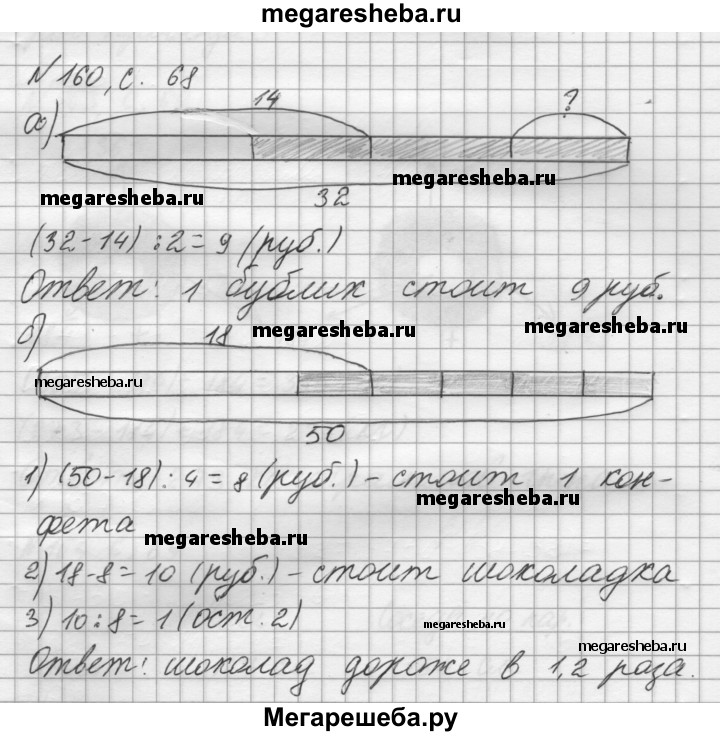 megaresheba.ru
N 160, с. 68
а) 14 ?
megaresheba.ru
megaresheba.ru
32
(32-14) : 2 = 9 (руб.)
Ответ: 1 бублик стоит 9 руб.
megaresheba.ru
megaresheba.ru
б) 18
megaresheba.ru
50
1) (50-18) : 4 = 8 (руб.) - стоит 1 кон-
megaresheba.ru
фета
megaresheba.ru
2) 18-8 = 10 (руб.) - стоит шоколадка
3) 10 : 8 = 1 (ост. 2)
megaresheba.ru
megaresheba.ru
Ответ: шоколад дороже в 1,2 раза.
Мегарешеба.ру